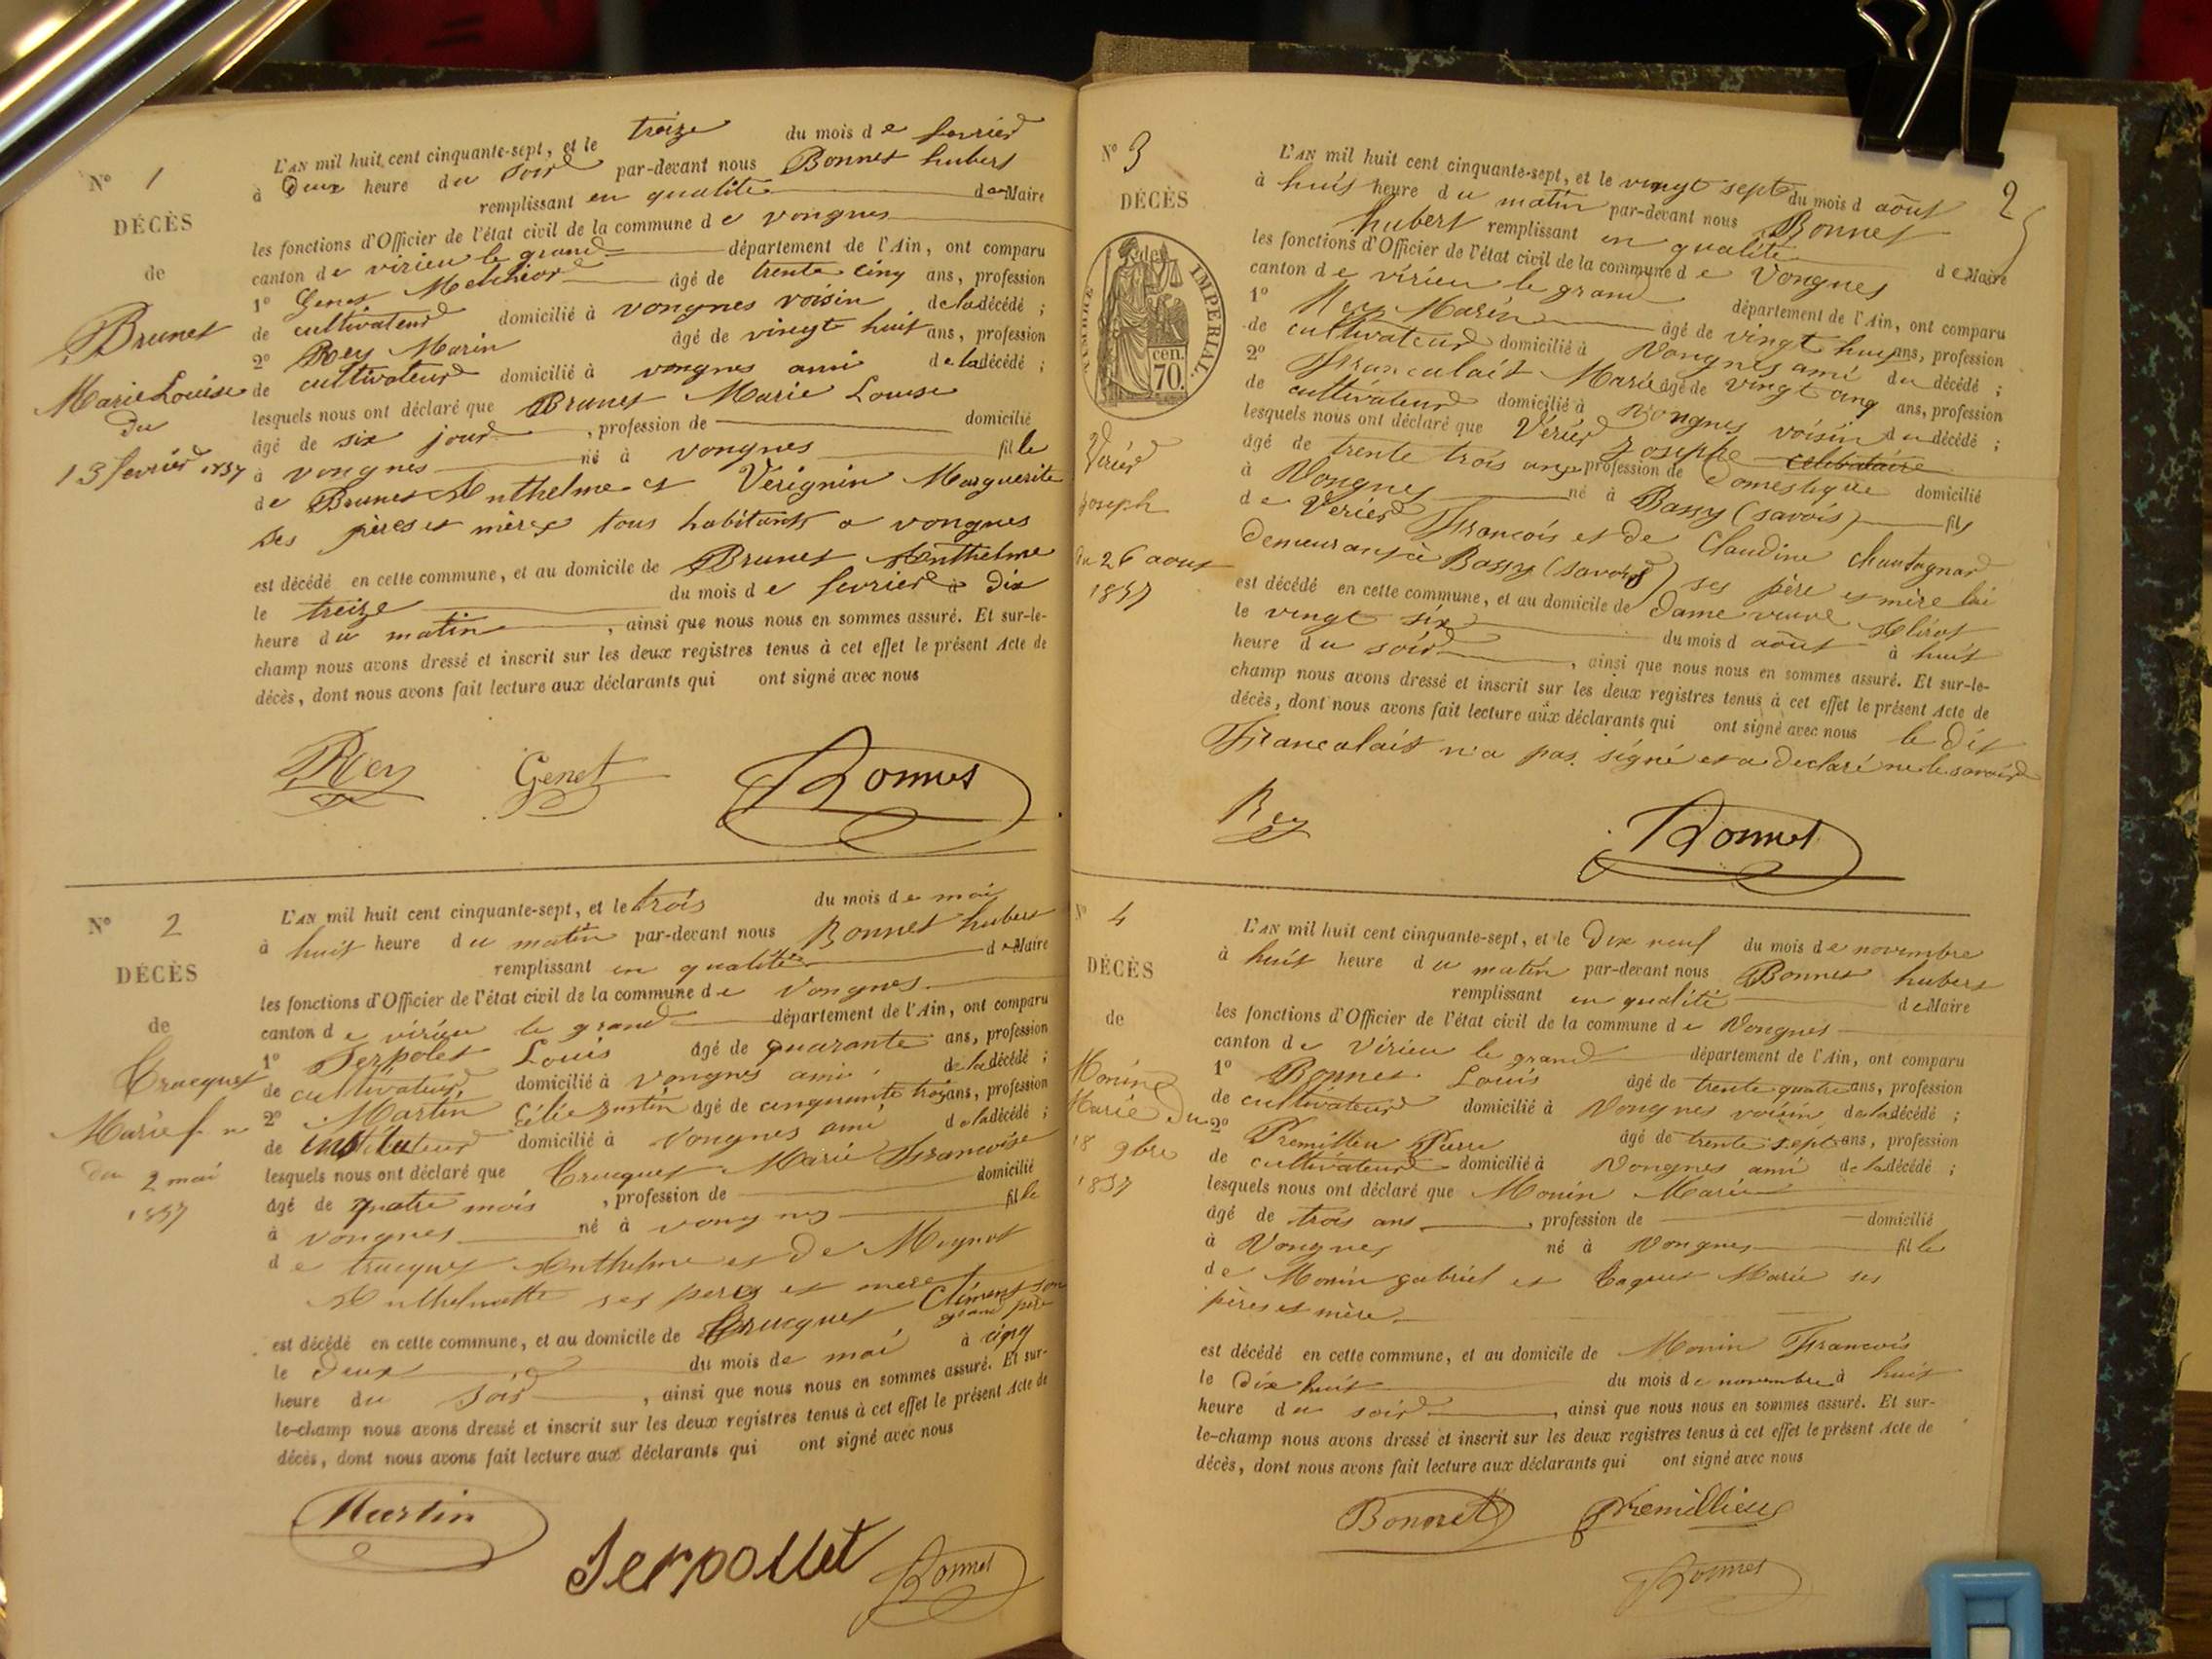 N° 1
DÉCÈS
de
Brunet
Marie Louise
du
13 fevrier 1857
L'AN mil huit cent cinquante-sept, et le treize du mois de fevrier
à Deux heure du soir par-devant nous Bonnet hubert
remplissant en qualité de Maire
les fonctions d'Officier de l'état civil de la commune de vongnes
canton de virieu le grand département de l'Ain, ont comparu
1° Genet Melchior âgé de trente cinq ans, profession
de cultivateur domicilié à vongnes voisin de la décédé ;
2° Rey Marin âgé de vingt huit ans, profession
de cultivateur domicilié à vongnes ami de la décédé ;
lesquels nous ont déclaré que Brunet Marie Louise
âgé de six jour, profession de domicilié
à vongnes né à vongnes fille
de Brunet Anthelme et Vérignin Marguerite
ses pères et mères tous habitants a vongnes
est décédé en cette commune, et au domicile de Brunet Anthelme
le treize du mois de fevrier à dix
heure du matin, ainsi que nous nous en sommes assuré. Et sur-le-
champ nous avons dressé et inscrit sur les deux registres tenus à cet effet le présent Acte de
décès, dont nous avons fait lecture aux déclarants qui ont signé avec nous
Rey Genet Bonnet
N° 2
DÉCÈS
de
Trucquet
Marie f.
du 2 mai
1857
L'AN mil huit cent cinquante-sept, et le trois du mois de mai
à huit heure du matin par-devant nous Bonnet hubert
remplissant en qualité de Maire
les fonctions d'Officier de l'état civil de la commune de Vongnes
canton de virieu le grand département de l'Ain, ont comparu
1° Serpolet Louis âgé de quarante ans, profession
de cultivateur domicilié à Vongnes ami de la décédé ;
2° Martin âgé de cinquante trois ans, profession
de instituteur domicilié à Vongnes ami de la décédé ;
lesquels nous ont déclaré que Trucquet Marie Francoise
âgé de quatre mois, profession de domicilié
à vongnes né à vongnes fille
de trucquet Anthelme et de Mognot
Anthelmette ses peres et mere
est décédé en cette commune, et au domicile de Trucquet Clément son grand père
le Deux du mois de mai à cinq
heure du soir, ainsi que nous nous en sommes assuré. Et sur-
le-champ nous avons dressé et inscrit sur les deux registres tenus à cet effet le présent Acte de
décès, dont nous avons fait lecture aux déclarants qui ont signé avec nous
Martin Serpollet Bonnet
2
N° 3
DÉCÈS
TIMBRE IMPÉRIAL
cen.
70.
Vérier
Joseph
du 26 aout
1857
L'AN mil huit cent cinquante-sept, et le vingt sept du mois d août
à huit heure du matin par-devant nous Bonnet
hubert remplissant en qualité de Maire
les fonctions d'Officier de l'état civil de la commune de Vongnes
canton de virieu le grand département de l'Ain, ont comparu
1° Rey Marin âgé de vingt huit ans, profession
de cultivateur domicilié à Vongnes ami du décédé ;
2° Francalait Marie âgé de vingt cinq ans, profession
de cultivateur domicilié à Vongnes voisin du décédé ;
lesquels nous ont déclaré que Vérier Joseph celibataire
âgé de trente trois ans, profession de Domestique domicilié
à Vongnes né à Bassy (savoie) fils
de Verier Francois et de Claudine Chautagnard
Demeurant à Bassy (savoie) ses père et mère lui
est décédé en cette commune, et au domicile de Dame veuve
le vingt six du mois d août à huit
heure du soir, ainsi que nous nous en sommes assuré. Et sur-le-
champ nous avons dressé et inscrit sur les deux registres tenus à cet effet le présent Acte de
décès, dont nous avons fait lecture aux déclarants qui ont signé avec nous le dit
Francalait n'a pas signé et a declaré ne le savoir
Rey Bonnet
N° 4
DÉCÈS
de
Monin
Marie du
18 9bre
1857
L'AN mil huit cent cinquante-sept, et le Dix neuf du mois de novembre
à huit heure du matin par-devant nous Bonnet hubert
remplissant en qualité de Maire
les fonctions d'Officier de l'état civil de la commune de Vongnes
canton de Virieu le grand département de l'Ain, ont comparu
1° Bonnet Louis âgé de trente quatre ans, profession
de cultivateur domicilié à Vongnes voisin de la décédé ;
2° Premillieu Pierre âgé de trente sept ans, profession
de cultivateur domicilié à Vongnes ami de la décédé ;
lesquels nous ont déclaré que Monin Marie
âgé de trois ans, profession de domicilié
à Vongnes né à Vongnes fille
de Monin gabriel et Marie ses
pères et mère
est décédé en cette commune, et au domicile de Monin Francois
le Dix huit du mois de novembre à huit
heure du soir, ainsi que nous nous en sommes assuré. Et sur-
le-champ nous avons dressé et inscrit sur les deux registres tenus à cet effet le présent Acte de
décès, dont nous avons fait lecture aux déclarants qui ont signé avec nous
Bonnet Premillieu
Bonnet